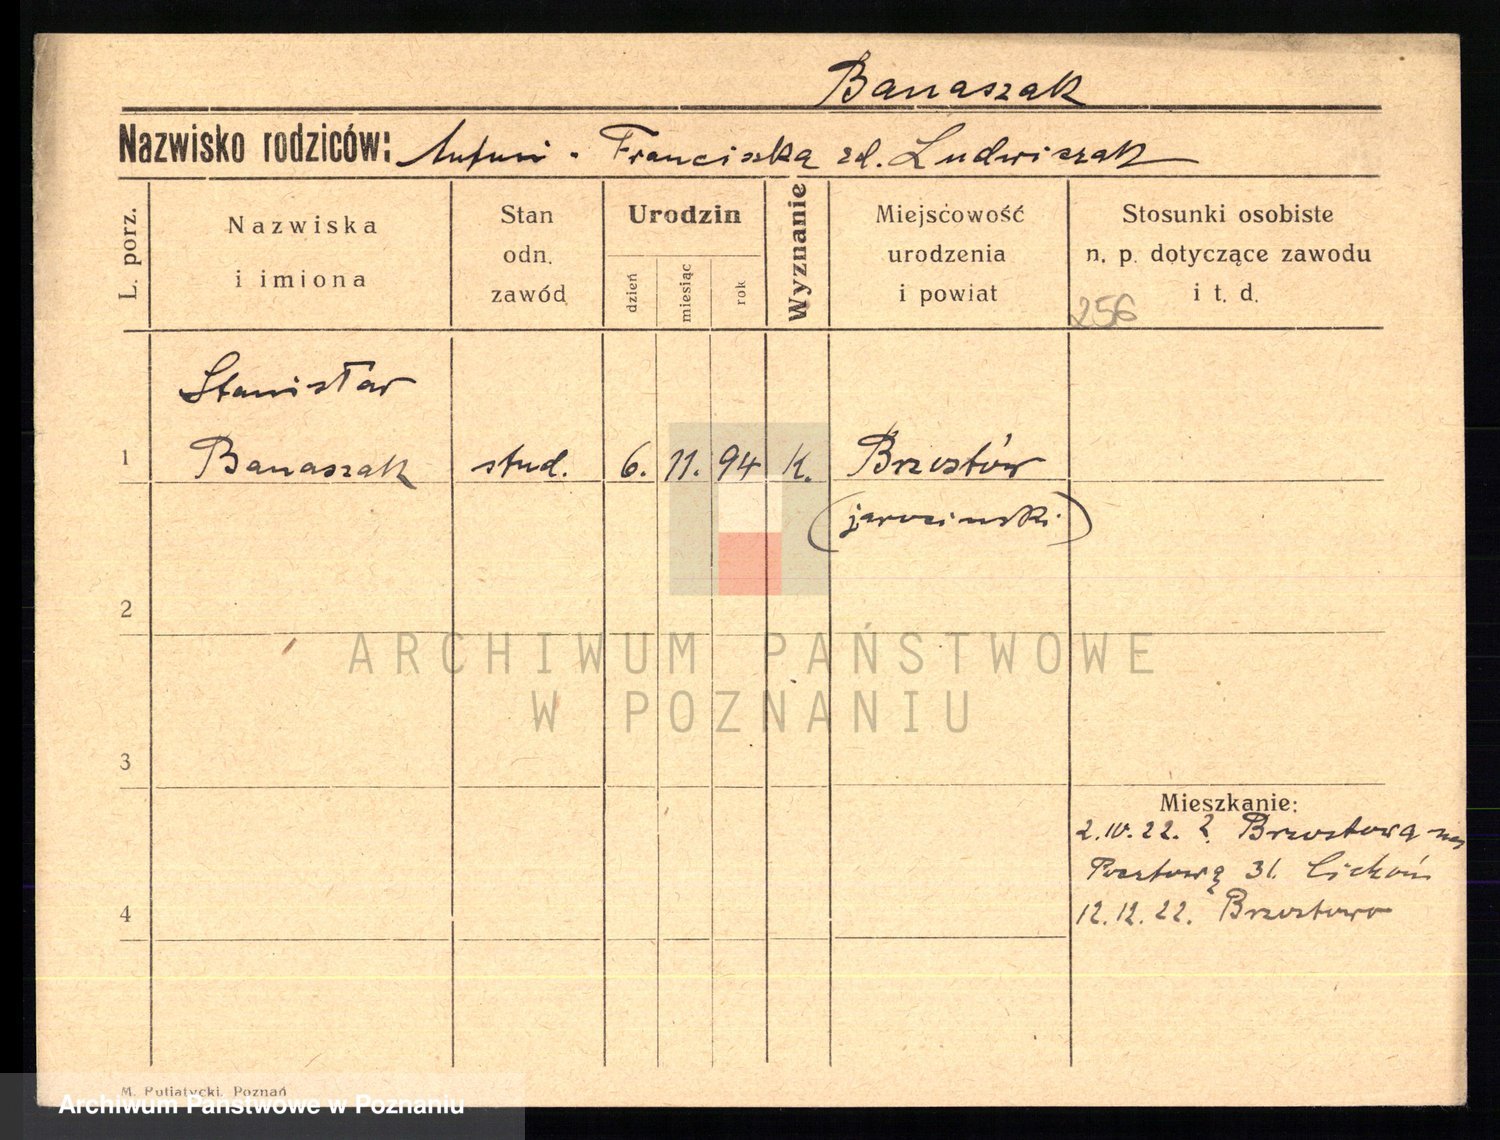 Banaszak
Nazwisko rodziców: Antoni - Franciszka zd. Ludwiczak
L. porz.
Nazwiska
i imiona
Stan
odn.
zawód
Urodzin
dzień
miesiąc
rok
Wyznanie
Miejscowość
urodzenia
i powiat
Stosunki osobiste
n. p. dotyczące zawodu
i t. d.
256
Stanisław
1 Banaszak stud. 6. 11. 94 K. Brzostów
(jarociński)
2
ARCHIWUM PAŃSTWOWE
W POZNANIU
3
Mieszkanie:
2.10.22. z Brzostowa
Pocztowa 31. Cichoń
4 12.12.22. Brzostowo
M. Putiatycki, Poznań
Archiwum Państwowe w Poznaniu